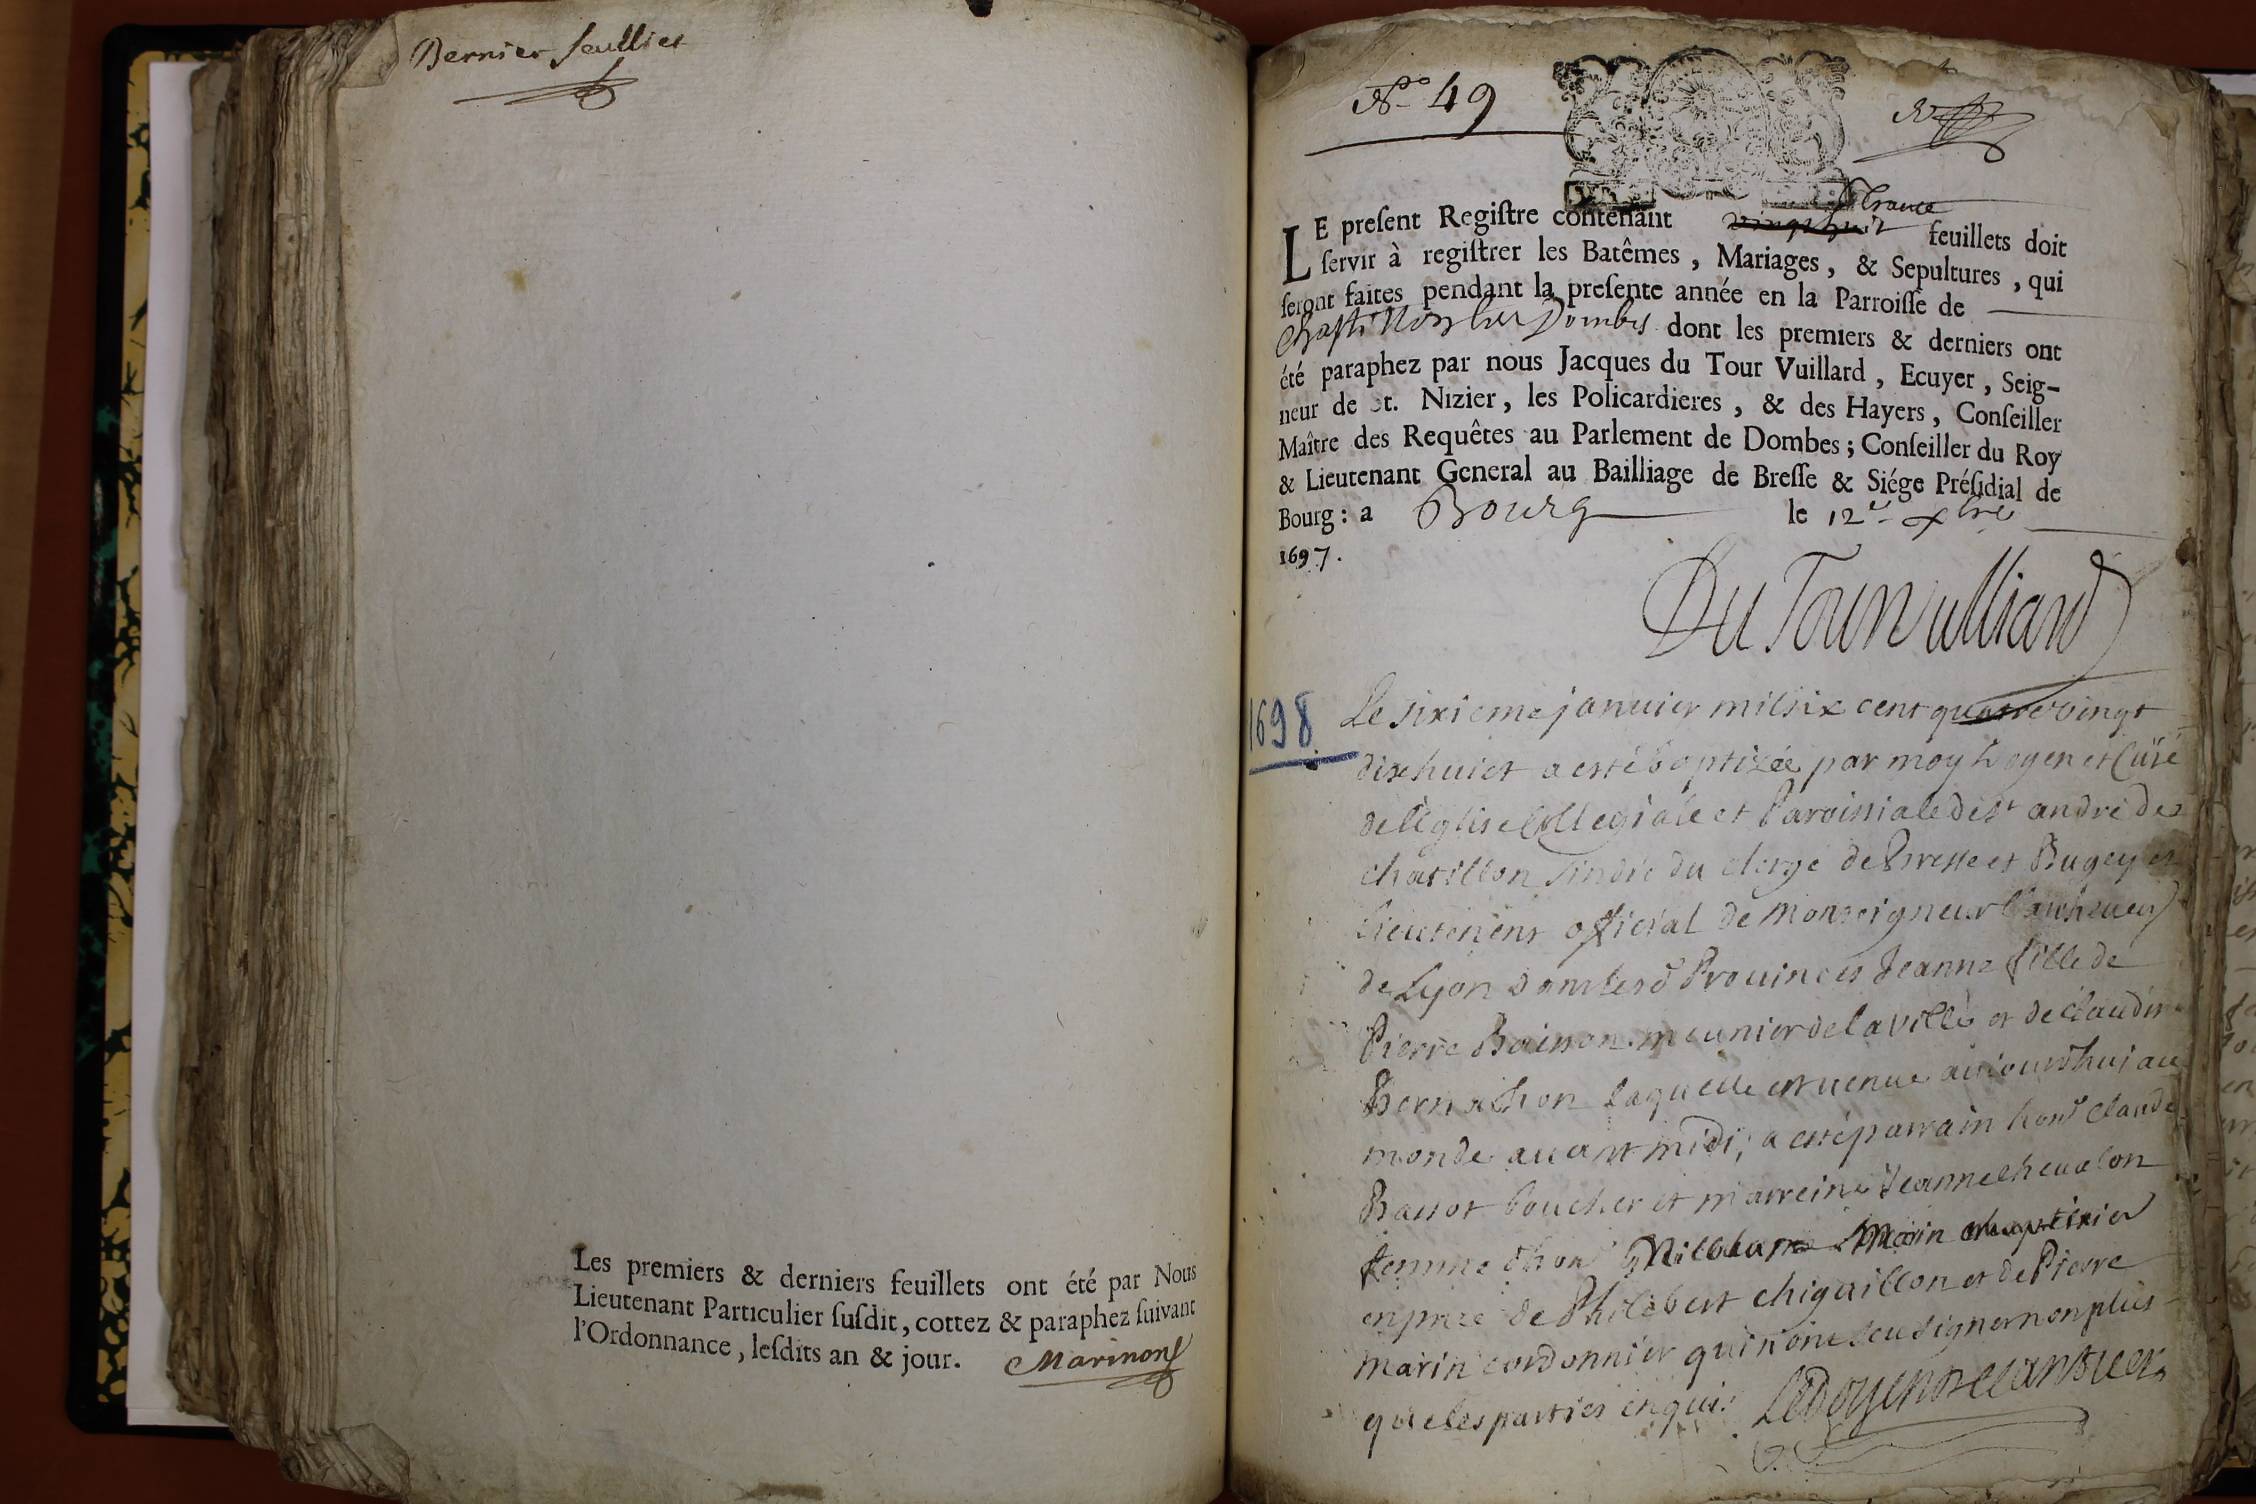 Dernier feullies
Les premiers & derniers feuillets ont été par Nous
Lieutenant Particulier ſuſdit, cottez & paraphez ſuivant
l'Ordonnance, leſdits an & jour. Marinon
No 49
trante
LE preſent Regiſtre contenant vingt huit feuillets doit
ſervir à regiſtrer les Batêmes, Mariages, & Sepultures, qui
ſeront faites pendant la preſente année en la Parroiſſe de
Chastillon les Dombes dont les premiers & derniers ont
été paraphez par nous Jacques du Tour Vuillard, Ecuyer, Seig-
neur de St. Nizier, les Policardieres, & des Hayers, Conſeiller
Maître des Requêtes au Parlement de Dombes; Conſeiller du Roy
& Lieutenant General au Bailliage de Breſſe & Siége Préſidial de
Bourg: a Bourg le 12e xbre
1697.
Du Tour Vulliard
1698
Le sixieme januier mil six cent quatre vingt
dixhuict a esté baptizée par moy Doyen et Curé
de l'eglise Collegiale et Paroissiale de st andré de
chatillon sindic du clergé de Bresse et Bugey et
lieutenent official de Monseigneur l'archeuesq
de Lyon dans lesd Prouinces Jeanne fille de
Pierre Boisson meunier de la ville et de Claudine
Bernachon laquelle est uenue auiourdhui au
monde auant midi; a esté parrain hond Claude
Bassot boucher et marreine Jeanne cheualon
femme d'hon Marin
en prnce de Philebert chigaillon et de Pierre
marin cordonnier qui n'ont sceu signer non plus
que les parties enquis.